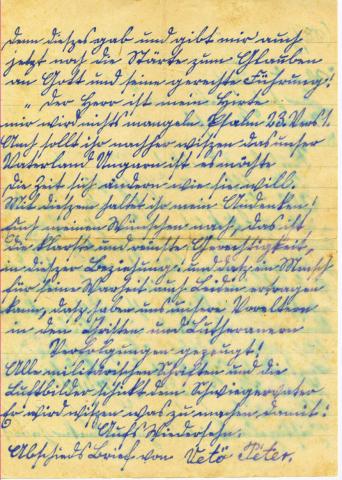 denn dieses gab und gibt mir auch
jetzt noch die Stärke zum Glauben
an Gott und seine gerechte Führung!
„Der Herr ist mein Hirte
mir wird nichts mangeln. Psalm 23. Vers. 1
Auch sollt ihr nachher wissen das unser
Vaterland Ungarn ist es möchte
die Zeit sich ändern wie sie will.
Mit diesem haltet ihr mein Andenken!
Auch meinen Wünschen nach, das ist
die und Gerechtigkeit,
in dieser Beziehung: und dasz ein Mensch
für seine Wahrheit auch Leiden ertragen
kann, dasz haben uns unsere Voreltern
in den und Lutheranern
Verfolgungen gezeugt!
Alle militärischen Schriften und die
Luftbilder schickt dem Schwiegervater
Er wird wissen was zu machen damit!
Aufs Wiedersehn.
Abschieds Brief von Vetö Péter.